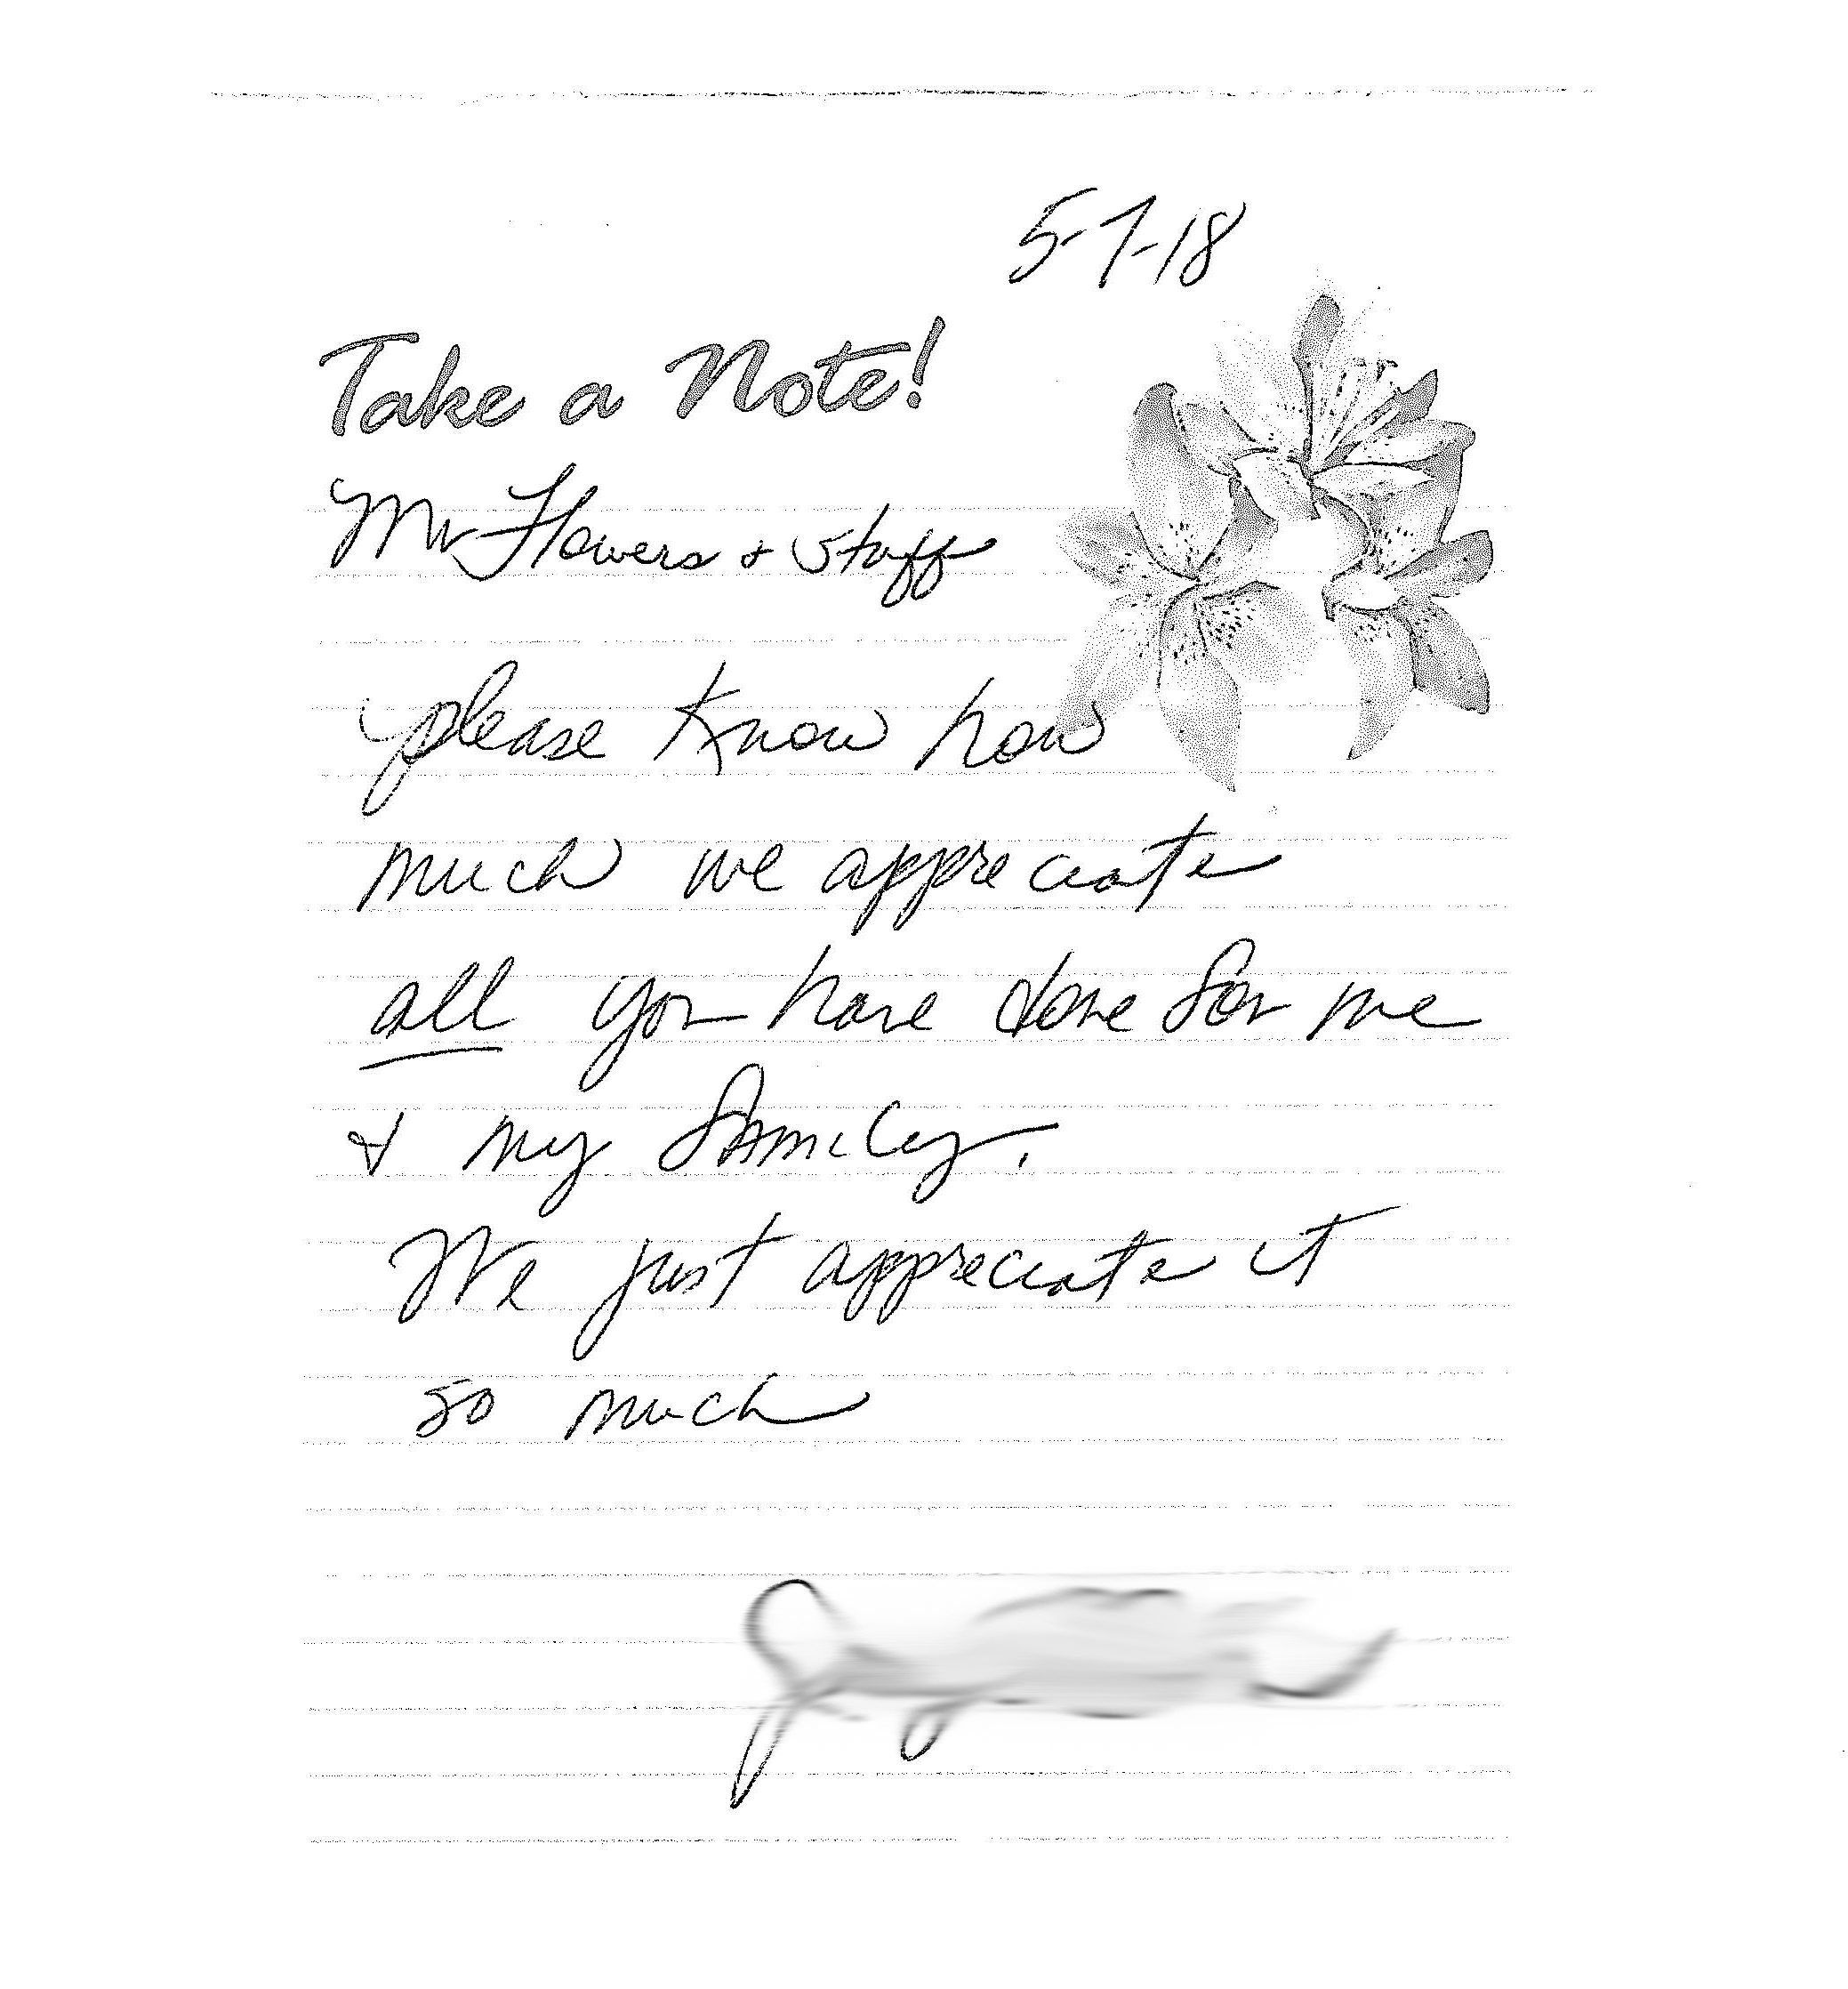 5-7-18
Take a Note!
Mr Flowers & staff
please know how
much we appreciate
all you have done for me
& my family.
We just appreciate it
so much